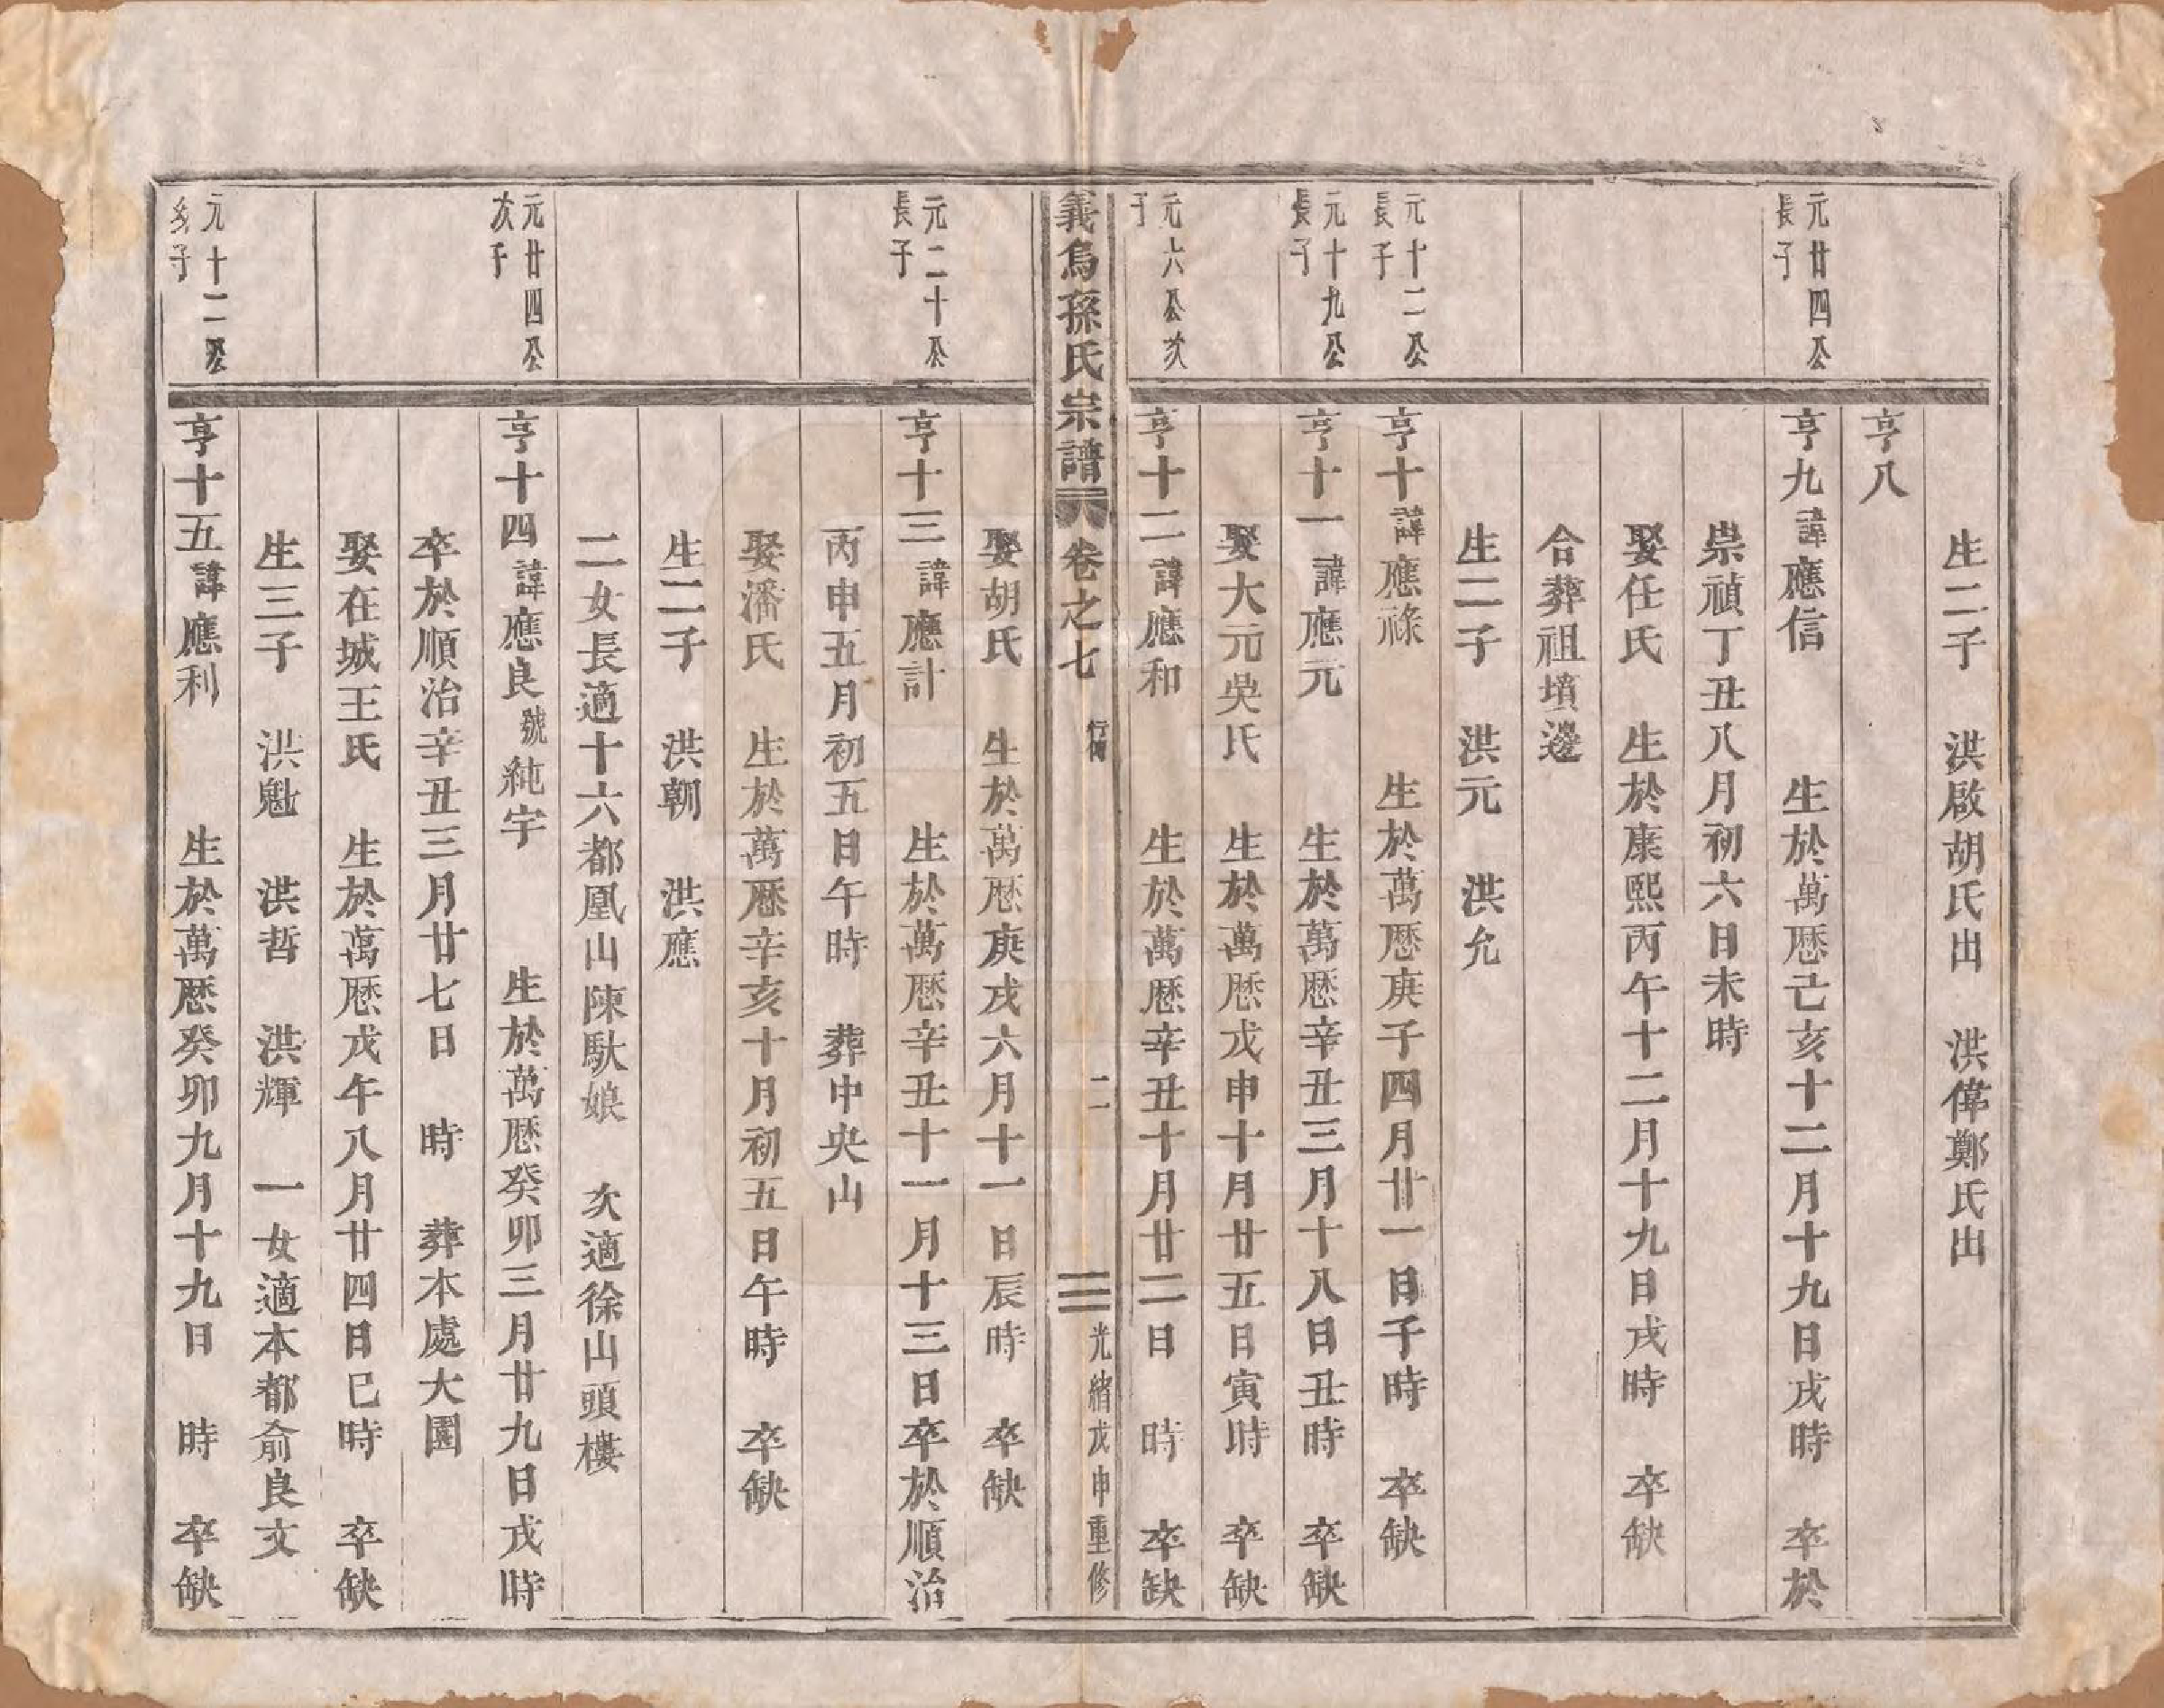 生二子　洪啟胡氏出　洪偉鄭氏出
亨八
元廿四公長子
亨九諱應信　生於萬歷己亥十二月十九日戌時　卒於
崇禎丁丑八月初六日未時
娶任氏　生於康熙丙午十二月十九日戌時　卒缺
合葬祖墳邊
生二子　洪元　洪允
元十二公長子
亨十諱應祿　生於萬歷庚子四月廿一日子時　卒缺
元十九公長子
亨十一諱應元　生於萬歷辛丑三月十八日丑時　卒缺
娶大元吳氏　生於萬歷戊申十月廿五日寅時　卒缺
元六公次子
亨十二諱應和　生於萬歷辛丑十月廿二日　時　卒缺
義烏孫氏宗譜　卷之七　行傳　二　光緒戊申重修
娶胡氏　生於萬歷庚戌六月十一日辰時　卒缺
元二十公長子
亨十三諱應計　生於萬歷辛丑十一月十三日卒於順治
丙申五月初五日午時　葬中央山
娶潘氏　生於萬歷辛亥十月初五日午時　卒缺
生二子　洪朝　洪應
二女長適十六都凰山陳馱娘　次適徐山頭樓
元廿四公次子
亨十四諱應良號純宇　生於萬歷癸卯三月廿九日戌時
卒於順治辛丑三月廿七日　時　葬本處大園
娶在城王氏　生於萬歷戊午八月廿四日巳時　卒缺
生三子　洪魁　洪哲　洪輝　一女適本都俞良文
元十二公幼子
亨十五諱應利　生於萬歷癸卯九月十九日　時　卒缺